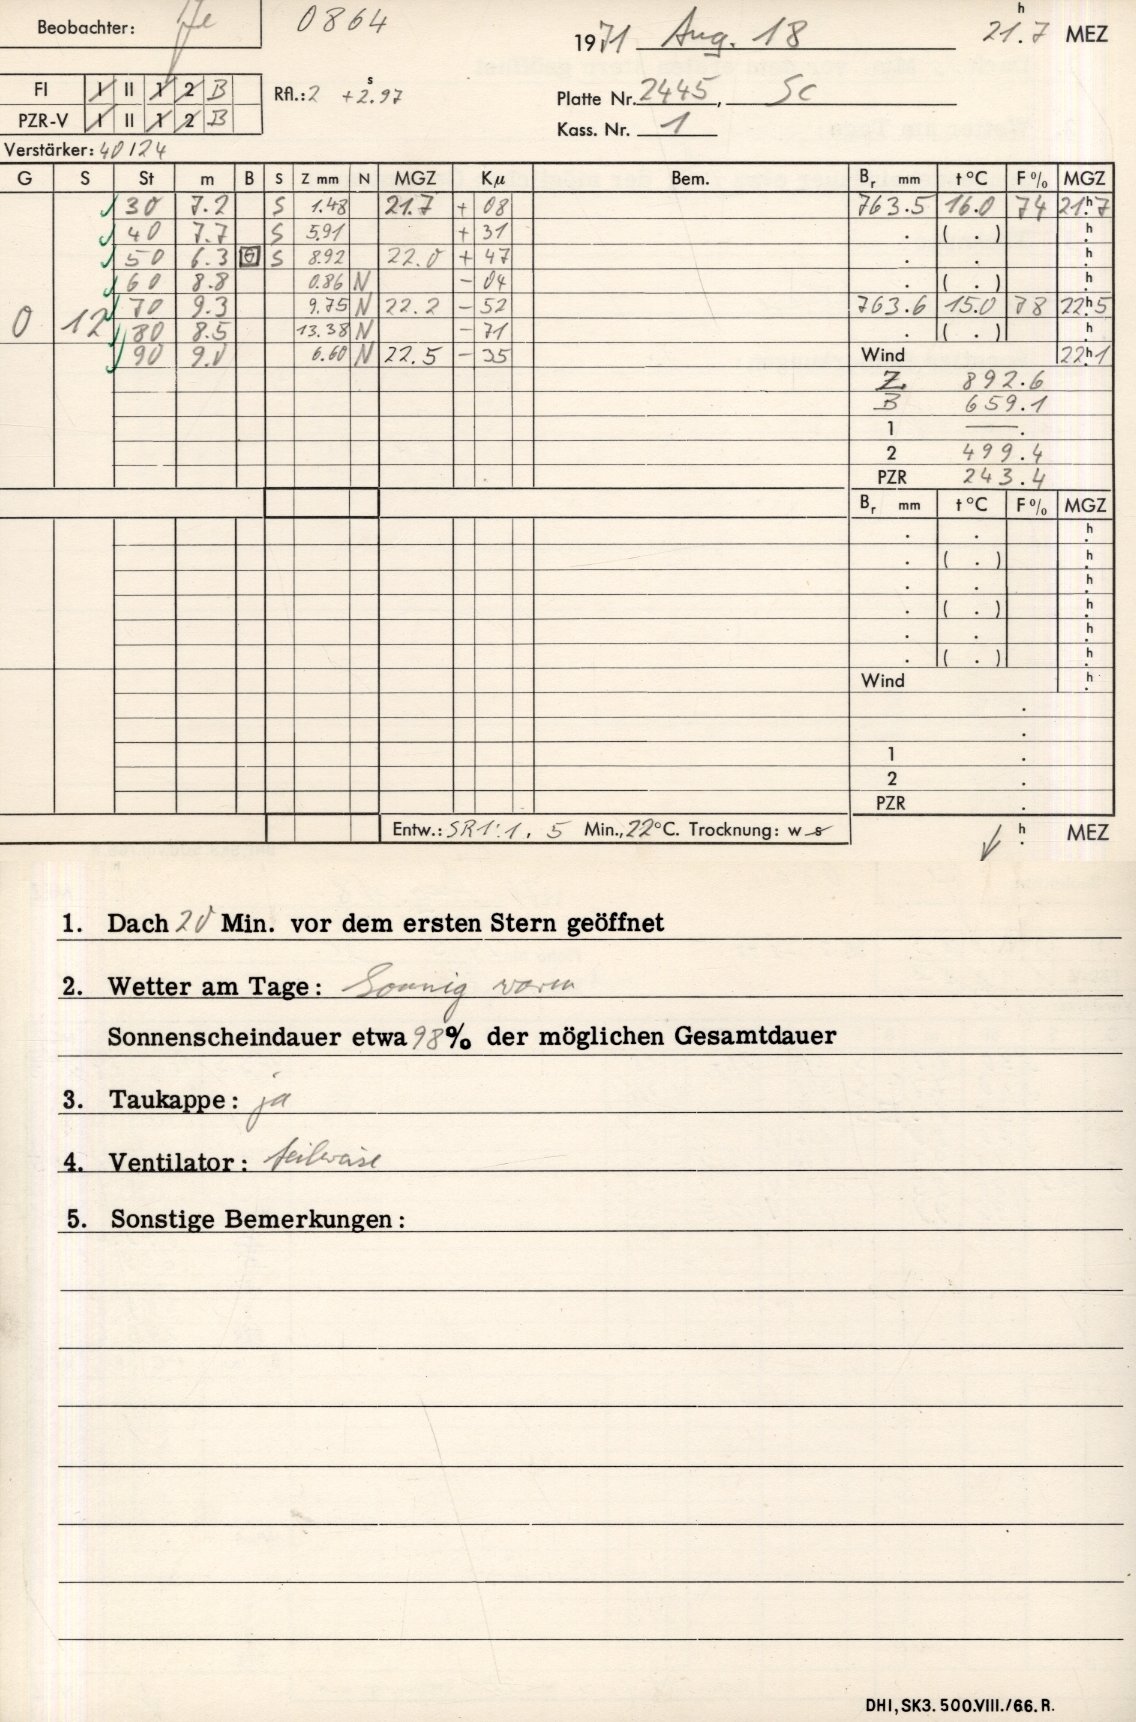 Beobachter: He 0864 1971 Aug. 18 21.7 h MEZ
FI I II 1 2 B Rfl.: 2 +2.97 s Platte Nr. 2445, Sc
PZR-V I II 1 2 B Kass. Nr. 1
Verstärker: 40/24
G S St m B S Z mm N MGZ Kμ Bem. Br mm t °C F % MGZ
30 7.2 S 1.48 21.7 + 08 763.5 16.0 74 21h.7
40 7.7 S 5.91 + 31 . ( . ) h.
50 6.3 S 8.92 22.0 + 47 . . h.
60 8.8 0.86 N - 04 . ( . ) h.
0 12 70 9.3 9.75 N 22.2 - 52 763.6 15.0 78 22h.5
80 8.5 13.38 N - 71 . ( . ) h.
90 9.0 6.60 N 22.5 - 35 Wind 22h.1
Z 892.6
B 659.1
1 — .
2 499.4
PZR 243.4
Br mm t °C F % MGZ
. . h.
. ( . ) h.
. . h.
. ( . ) h.
. . h.
. ( . ) h.
Wind h.
.
.
1 .
2 .
PZR .
Entw.: SR1:1, 5 Min., 22°C. Trocknung: w s h. MEZ
1. Dach 20 Min. vor dem ersten Stern geöffnet
2. Wetter am Tage: Sonnig warm
Sonnenscheindauer etwa 98% der möglichen Gesamtdauer
3. Taukappe: ja
4. Ventilator: teilweise
5. Sonstige Bemerkungen:
DHI, SK3. 500.VIII./66. R.